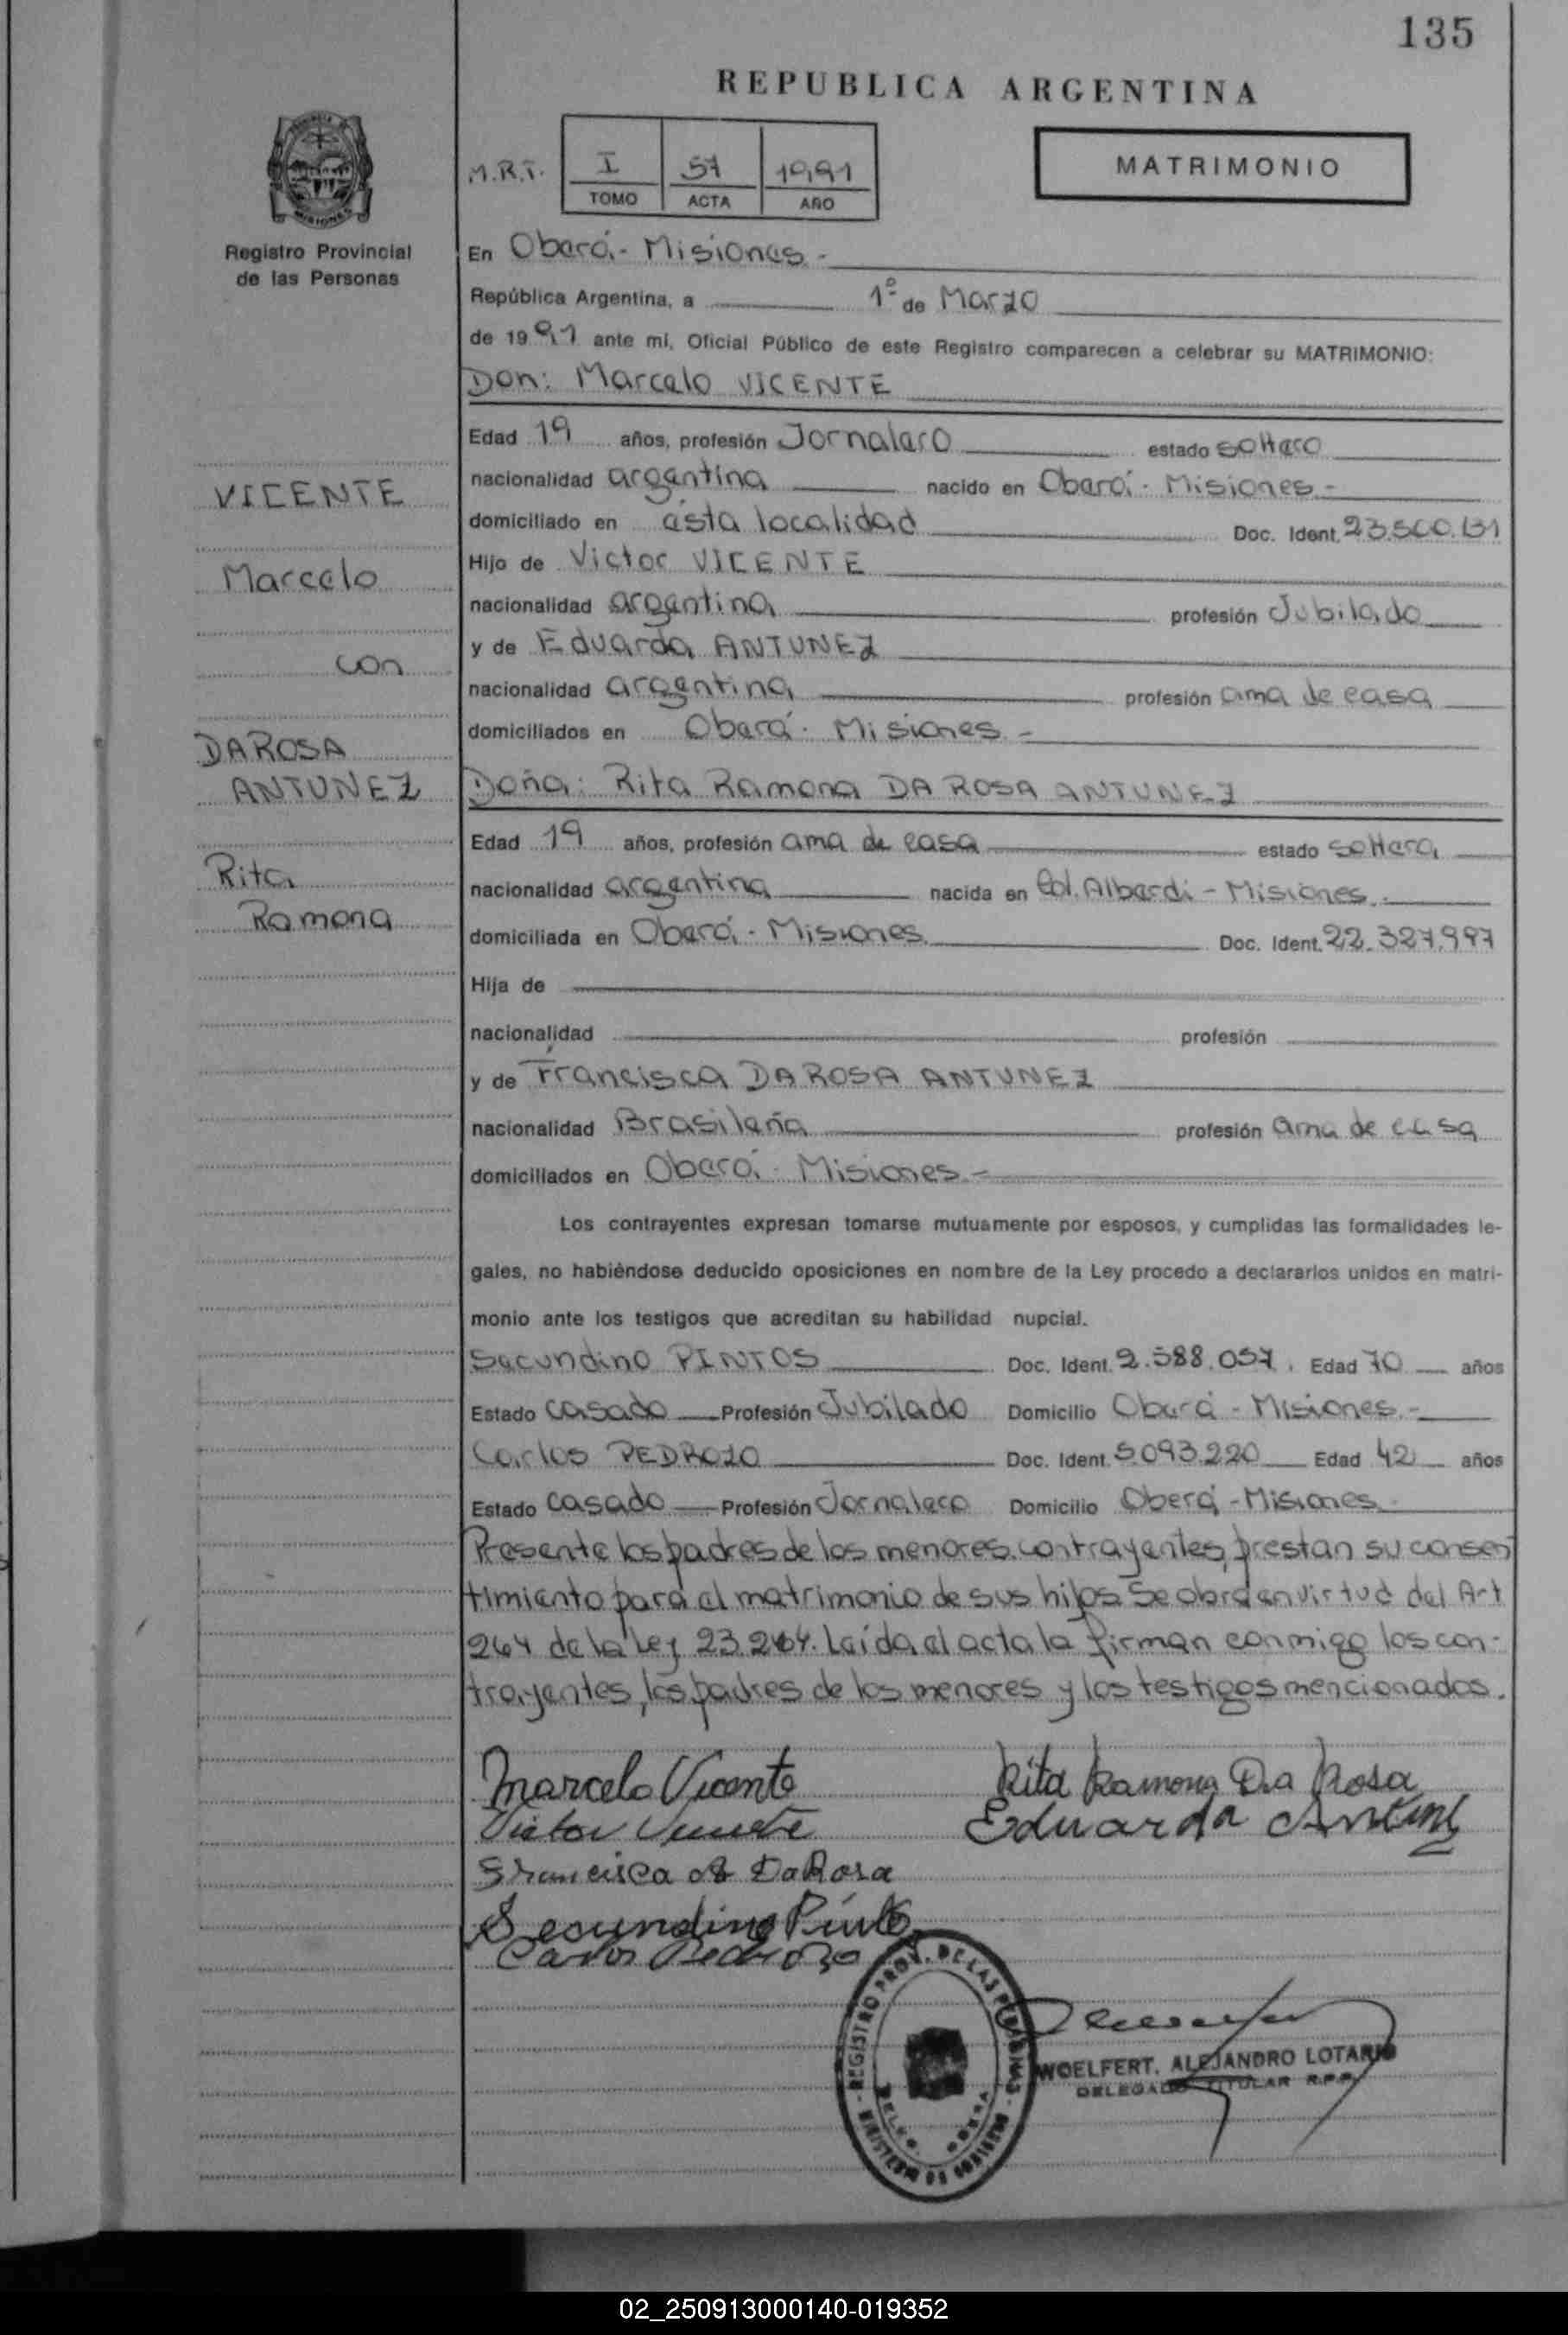 135
REPUBLICA ARGENTINA
M.R.T.
I
57
1991
TOMO
ACTA
AÑO
MATRIMONIO
Registro Provincial
de las Personas
En Oberá - Misiones -
República Argentina, a 1º de Marzo
de 1991 ante mí, Oficial Público de este Registro comparecen a celebrar su MATRIMONIO:
Don: Marcelo VICENTE
Edad 19 años, profesión Jornalero estado soltero
nacionalidad argentina nacido en Oberá - Misiones -
domiciliado en ésta localidad Doc. Ident. 23.500.131
Hijo de Victor VICENTE
nacionalidad argentina profesión Jubilado
y de Eduarda ANTUNEZ
nacionalidad argentina profesión ama de casa
domiciliados en Oberá - Misiones -
Doña: Rita Ramona DA ROSA ANTUNEZ
Edad 19 años, profesión ama de casa estado soltera
nacionalidad argentina nacida en Col. Alberdi - Misiones.
domiciliada en Oberá - Misiones Doc. Ident. 22.327.997
Hija de
nacionalidad profesión
y de Francisca DA ROSA ANTUNEZ
nacionalidad Brasileña profesión ama de casa
domiciliados en Oberá - Misiones -
Los contrayentes expresan tomarse mutuamente por esposos, y cumplidas las formalidades le-
gales, no habiéndose deducido oposiciones en nombre de la Ley procedo a declararlos unidos en matri-
monio ante los testigos que acreditan su habilidad nupcial.
Secundino PINTOS Doc. Ident. 2.588.057. Edad 70 años
Estado casado Profesión Jubilado Domicilio Oberá - Misiones -
Carlos PEDROZO Doc. Ident. 5.093.220 Edad 42 años
Estado casado Profesión Jornalero Domicilio Oberá - Misiones
Presente los padres de los menores contrayentes, prestan su consen
timiento para el matrimonio de sus hijos Se obra en virtud del Art
264 de la Ley 23.264. Leída el acta la firman conmigo los con-
trayentes, los padres de los menores y los testigos mencionados.
VICENTE
Marcelo
con
DA ROSA
ANTUNEZ
Rita
Ramona
Marcelo Vicente
Rita Ramona Da Rosa
Victor Vicente
Eduarda
Francisca DaRosa
Secundino
Carlos Pedrozo
REGISTRO PROV. DE LAS PERSONAS
MINISTERIO DE GOBIERNO
WOELFERT, ALEJANDRO LOTARIO
DELEGADO TITULAR R.P.P.
02_250913000140-019352